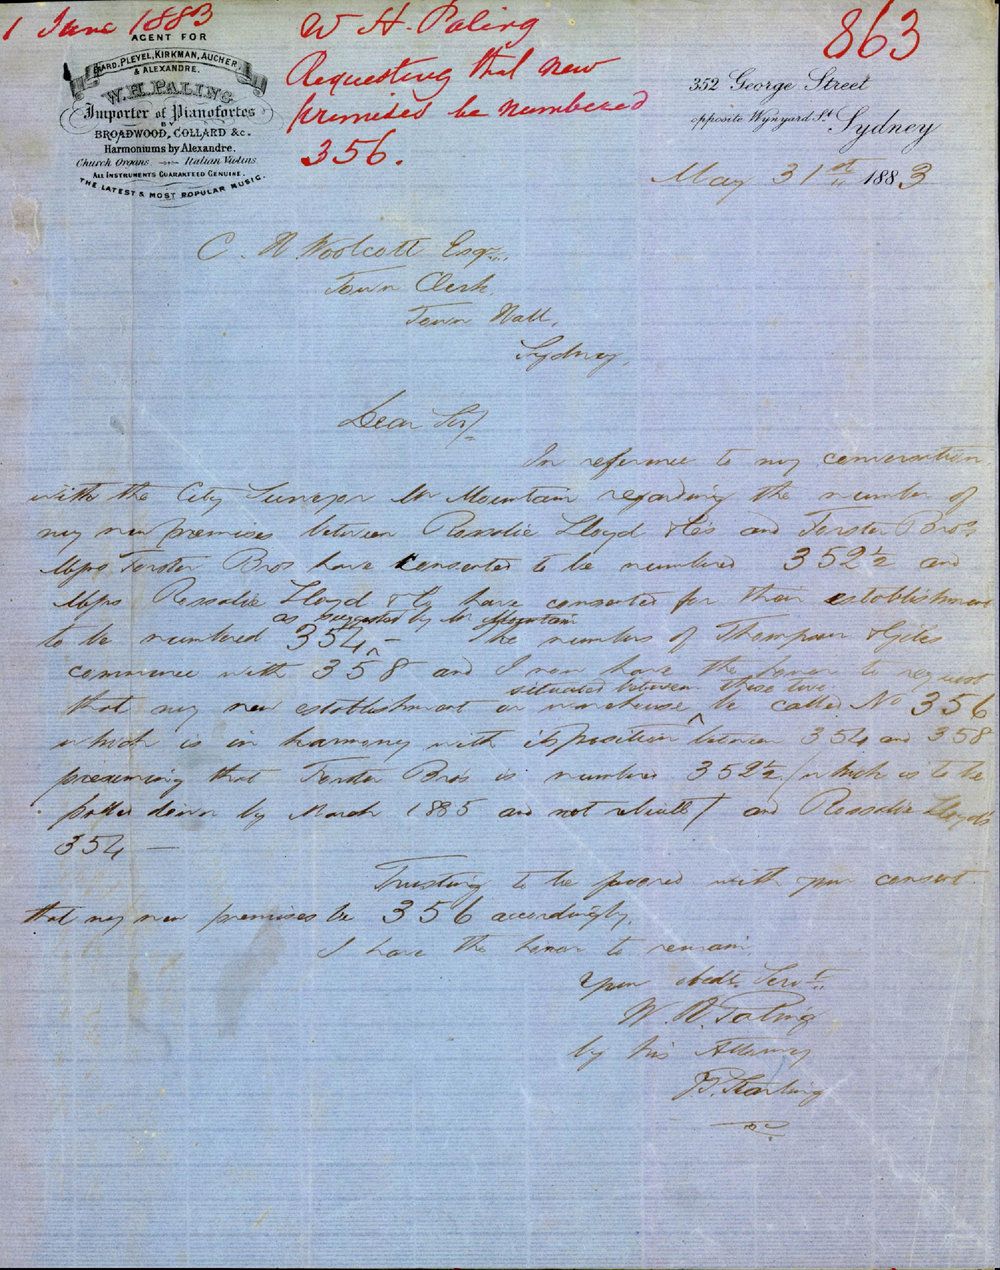 1 June 1883
W H. Paling
Requesting that new
premises be numbered
356.
863
AGENT FOR
ERARD, PLEYEL, KIRKMAN, AUCHER,
& ALEXANDRE.
W.H. PALING
Importer of Pianofortes
BY
BROADWOOD, COLLARD &c.
Harmoniums by Alexandre.
Church Organs Italian Violins.
ALL INSTRUMENTS GUARANTEED GENUINE.
THE LATEST & MOST POPULAR MUSIC.
352 George Street
opposite Wynyard St. Sydney
May 31st 1883
C. H. Woolcott Esqr.,
Town Clerk,
Town Hall,
Sydney.
Dear Sir/
In reference to my conversation
with the City Surveyor Mr Mountain regarding the number of
my new premises between Rossolie Lloyd & Co's and Forster Bros
Messrs Forster Bros have consented to be numbered 352½ and
Messrs Rossolie Lloyd & Co have consented for their establishment
as suggested by Mr Mountain
to be numbered 354 — the numbers of Thompson & Giles
commence with 358 and I now have the honor to request
situated between these two
that my new establishment or warehouse be called No 356
which is in harmony with its position between 354 and 358
presuming that Forster Bros is numbered 352½ (which is to be
pulled down by March 1885 and not rebuilt) and Rossolie Lloyds
354 —
Trusting to be favored with your consent
that my new premises be 356 accordingly.
I have the honor to remain
Your obedt. Servt.
W. H. Paling
by his Attorney